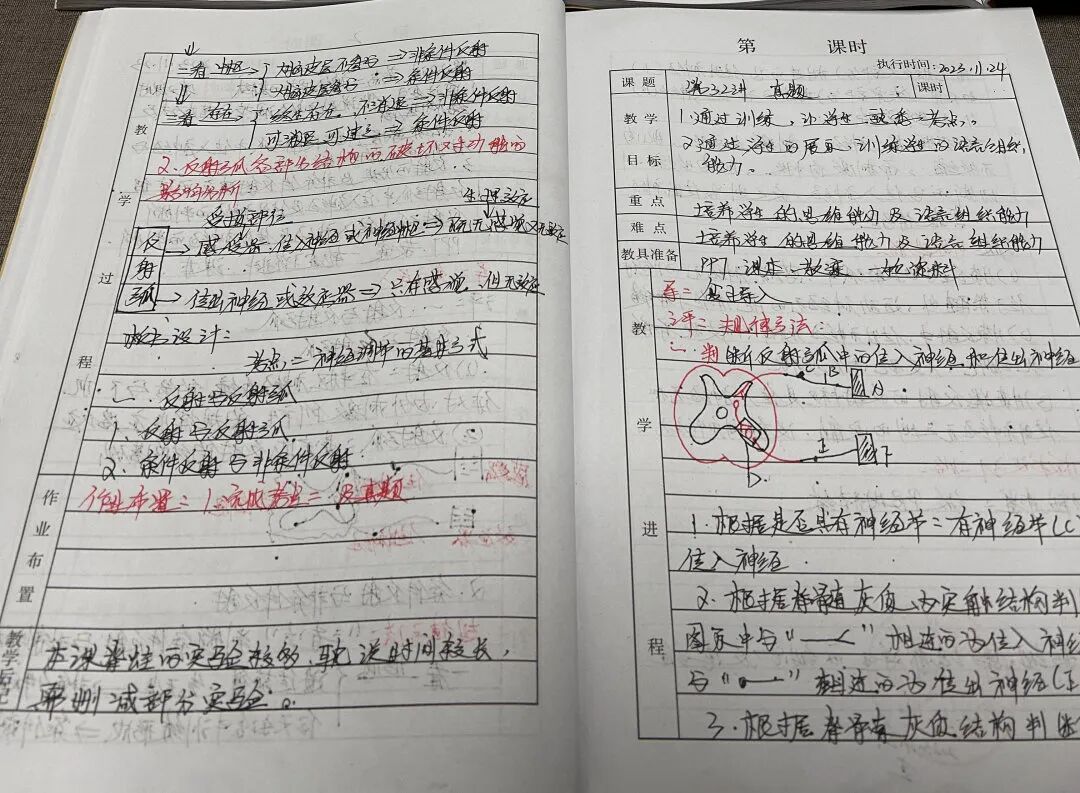 二看中枢→大脑皮层不参与⇒非条件反射
大脑皮层参与⇒条件反射
三看存在→终生存在,不消退⇒非条件反射
可消退可建立⇒条件反射
2.反射弧各部分结构的破坏对功能的
影响分析
受损部位
生理效应
反射弧
→感受器、传入神经或神经中枢⇒既无感觉又无效应
→传出神经或效应器⇒只有感觉,但无效应
板书设计:
考点二 神经调节的基本方式
一.反射与反射弧
1.反射与反射弧
2.条件反射与非条件反射
作业布置:1.完成考点二及真题
本课牵涉的实验较多,耽误时间较长,
要删减部分实验。
教学过程
作业布置
教学后记
第 课时
执行时间:2023.11.24
课题 第23讲 真题
课时
教学目标
1.通过训练,让学生 考点。
2.通过学生的展示,训练学生的语言组织
能力。
重点 培养学生的思维能力及语言组织能力
难点 培养学生的思维能力及语言组织能力
教具准备 PPT.课本 教案
导:复习导入
评:规律方法:
一.判断反射弧中的传入神经和传出神经
B
A
E
F
D
1.根据是否具有神经节:有神经节(C
传入神经
2.根据脊髓灰质内突触结构判
图示中与“—<”相连的为传入神经
与“•—”相连的为传出神经(E
3.根据脊髓灰质结构判断
教学进程